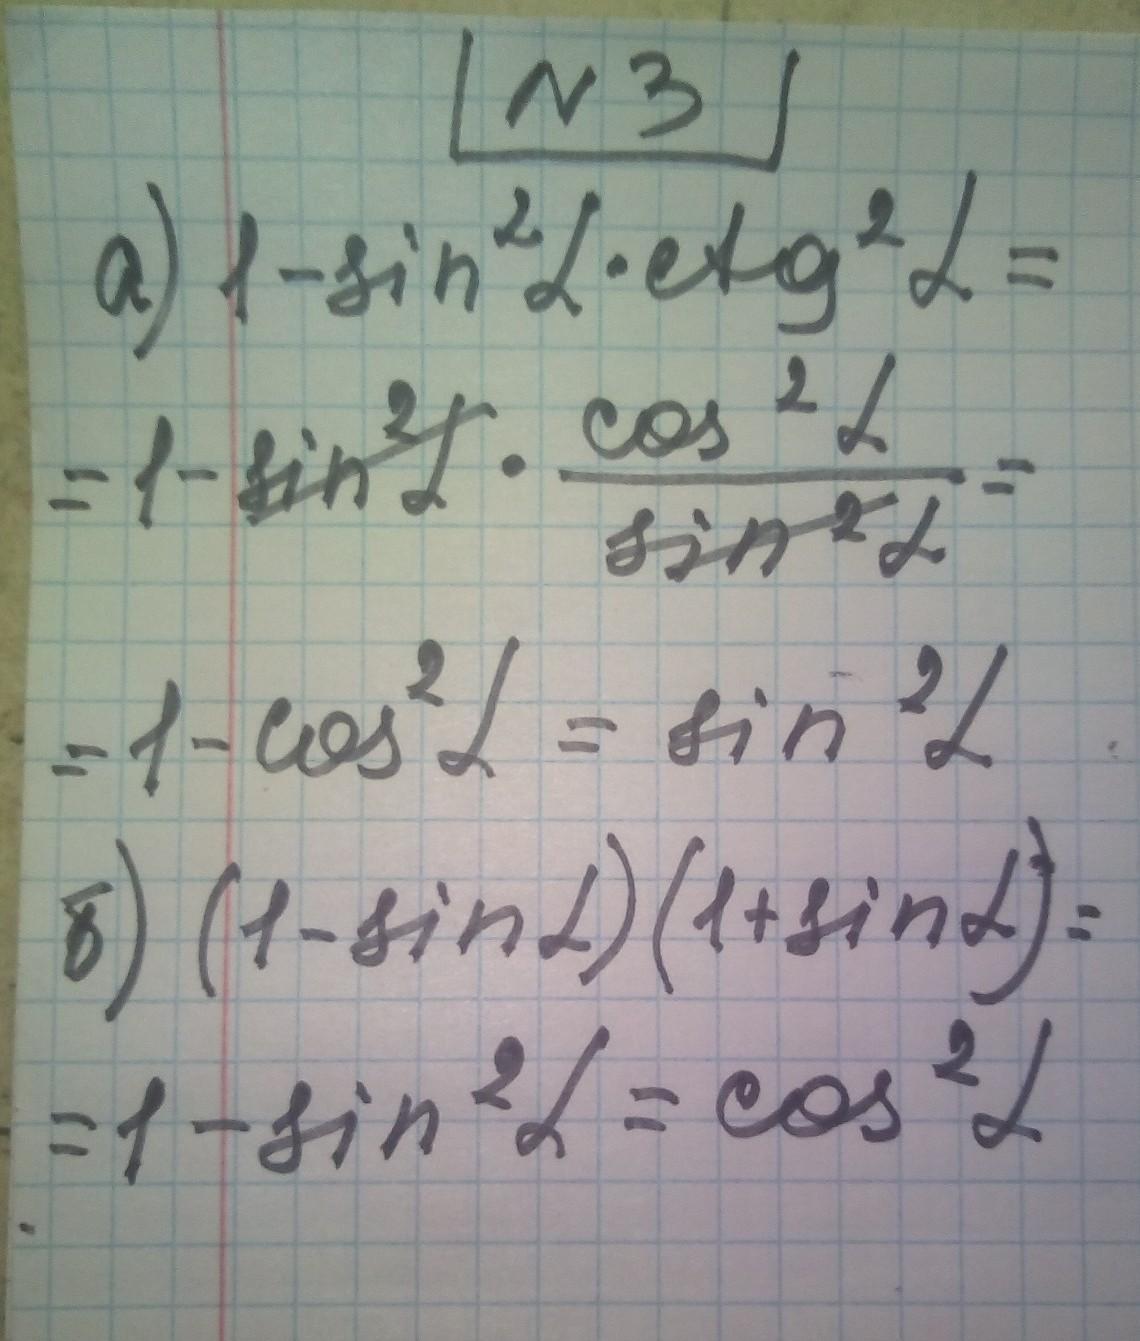 N 3
а) 1 - sin²α · ctg²α =
= 1 - sin²α · cos²α / sin²α =
= 1 - cos²α = sin²α
б) (1 - sinα)(1 + sinα) =
= 1 - sin²α = cos²α